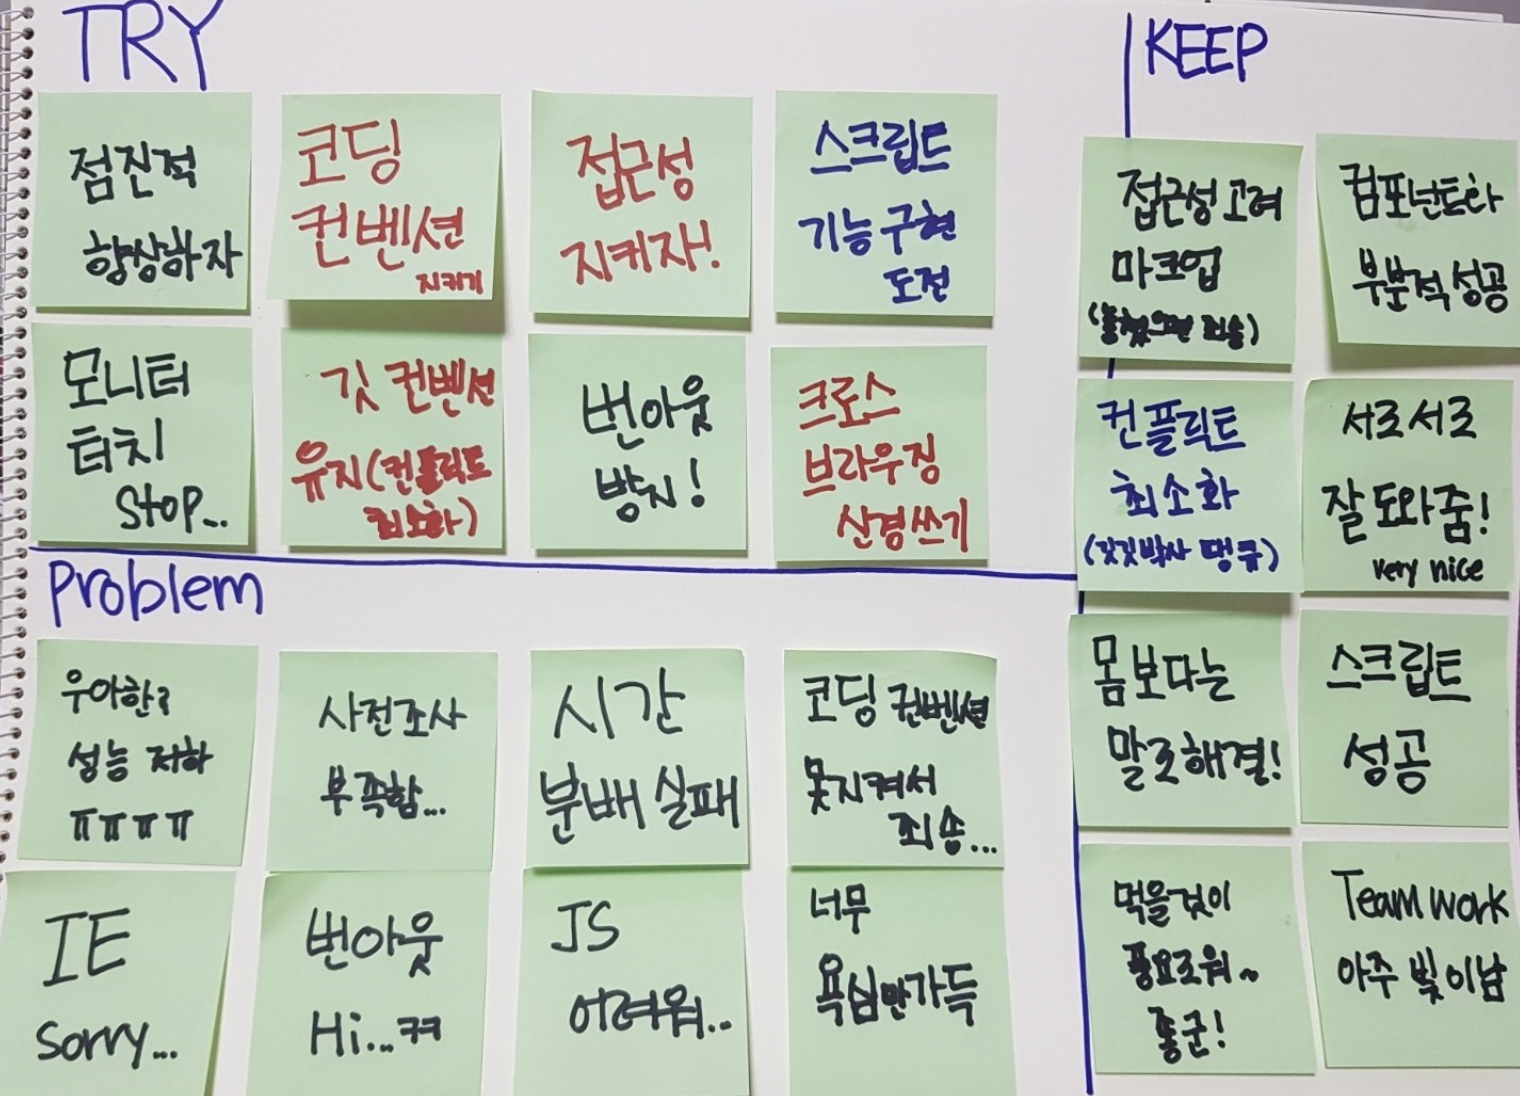 TRY
점진적
향상하자
코딩
컨벤션
지키기
접근성
지키자!
스크립트
기능 구현
도전
모니터
터치
stop...
깃 컨벤션
유지(컨플릭트
최소화)
번아웃
방지!
크로스
브라우징
신경쓰기
KEEP
접근성 고려
마크업
죄송)
컴포넌트화
부분적 성공
컨플릭트
최소화
(깃깃박사 땡큐)
서로서로
잘 도와줌!
very nice
몸 보다는
말로 해결!
스크립트
성공
먹을것이
풍요로워~
좋군!
Team work
아주 빛이남
Problem
우아한?
성능 저하
ㅠㅠㅠㅠ
사전조사
부족함...
시간
분배 실패
코딩 컨벤션
못지켜서
죄송...
IE
sorry...
번아웃
Hi...ㅋㅋ
JS
어려워..
너무
욕심만가득